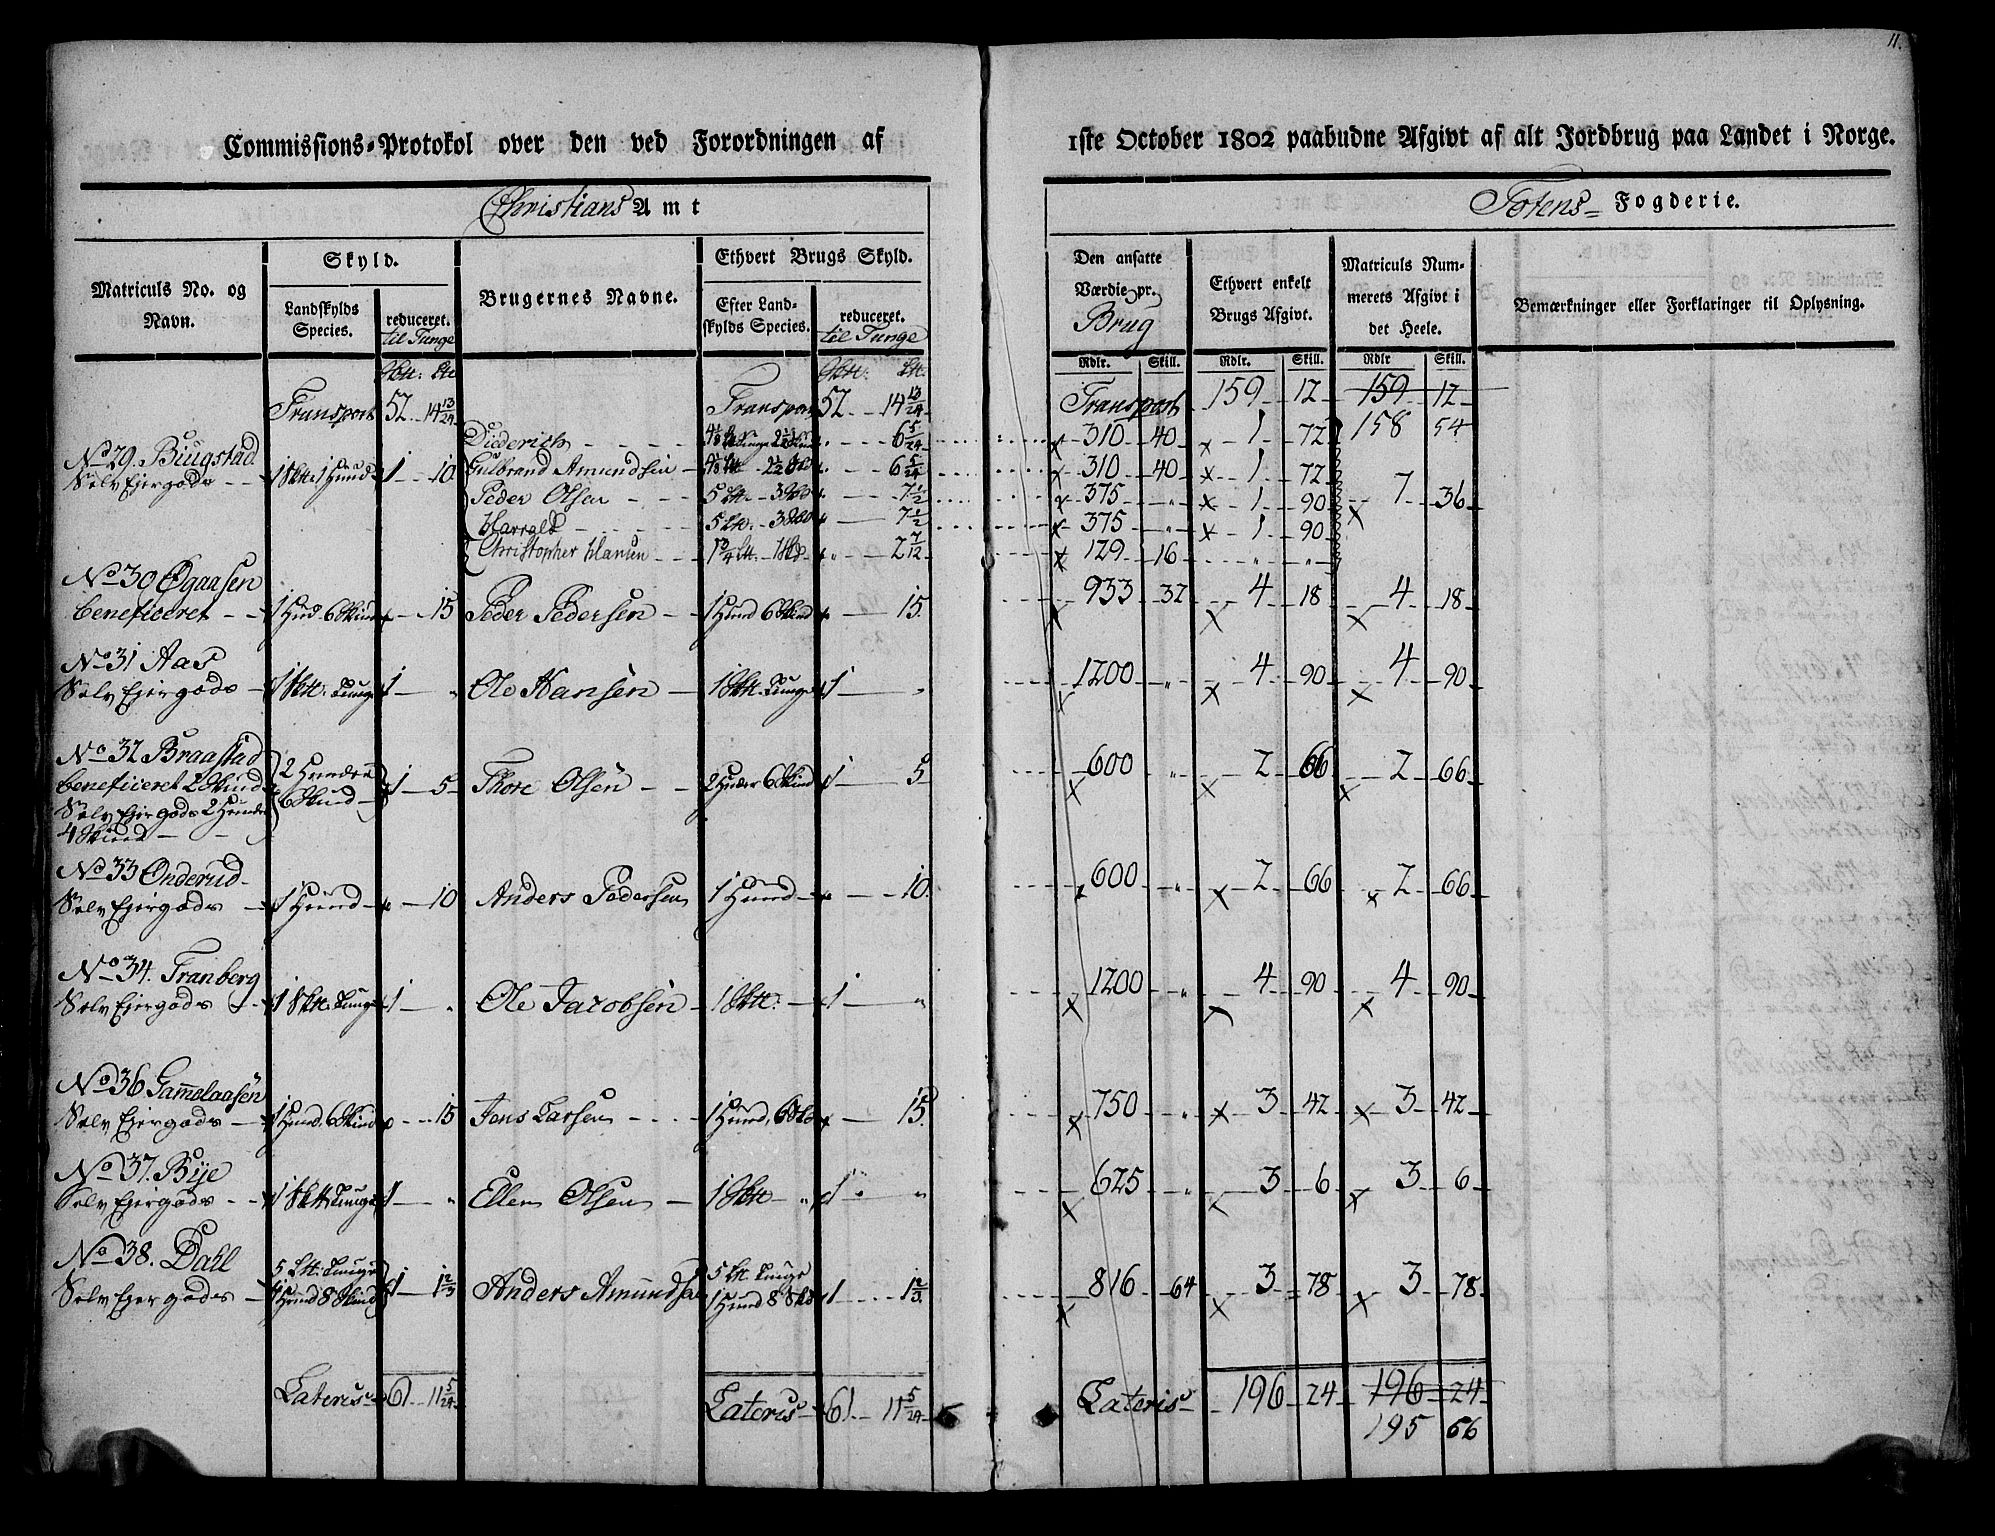 11.
Commissions-Protokol over den ved Forordningen af 1ste October 1802 paabudne Afgivt af alt Jordbrug paa Landet i Norge.
Christians Amt
Totens Fogderie.
Matriculs No. og Navn.
Skyld.
Landskylds Species.
reduceret. til Tunge
Brugernes Navne.
Ethvert Brugs Skyld.
Efter Landskylds Species.
reduceret. til Tunge
Den ansatte Værdie pr. Brug
Ethvert enkelt Brugs Afgivt.
Matriculs Nummerets Afgivt i det Heele.
Bemærkninger eller Forklaringer til Oplysning.
Rdlr. Skill. Rdlr. Skill. Rdlr Skill.
Transport 52 14 13/24 Transport 52 14 13/24 Transport 159 12 159 12
158 54
No 29. Biugstad
Selv Ejergods 1 10
Diederich 6 5/24 310 40 1 72
Gulbrand Amundsen 6 5/24 310 40 1 72
Peder Olsen 5 7 1/2 375 1 90 7 36
Harrald 5 7 1/2 375 1 90
Christopher Hansen 2 7/12 129 16
No 30 Øgaasen
beneficeret 1 Hud 6 Skind 15 Peder Pedersen 1 Huud 6 Skind 15. 933 32 4 18 4 18
No 31 Aas
Selv Ejergods 1 Skt. Tunge 1 Ole Hansen 1 Skt. Tunge 1 1200 4 90 4 90
No 32 Braastad
beneficeret 2 Skind
Selv Ejergods 2 Huuder
4 Skind
2 Huuder
6 Skind 1 5 Thore Olsen 2 Huder 6 Skind 1 5 600 2 66 2 66
No 33 Onderud
Selv Ejergods 1 Huud 10 Anders Pedersen 1 Huud 10. 600 2 66 2 66
No 34. Tranberg
Selv Ejergods 1 Skt. Tunge 1 Ole Jacobsen 1 Skt. 1 1200 4 90 4 90
No 36 Gam̄elaasen
Selv Ejergods 1 Huud, 6 Skind 15 Jens Larsen 1 Huud, 6 Skd 15. 750 3 42 3 42
No 37. Bye
Selv Ejergods 1 Skt Tunge 1 Ellen Olsen 1 Skt 1 625 3 6 3 6
No 38. Dahl
Selv Ejergods
5 Lt. Tunge
1 Huud 8 Skind 1 1 2/3 Anders Amundsen
5 Lt. Tunge
1 Huud 8 Skd 1 1 2/3 816 64 3 78 3 78
Lateris 61 11 5/24 Lateris 61 11 5/24 Lateris 196 24 196 24
195 66